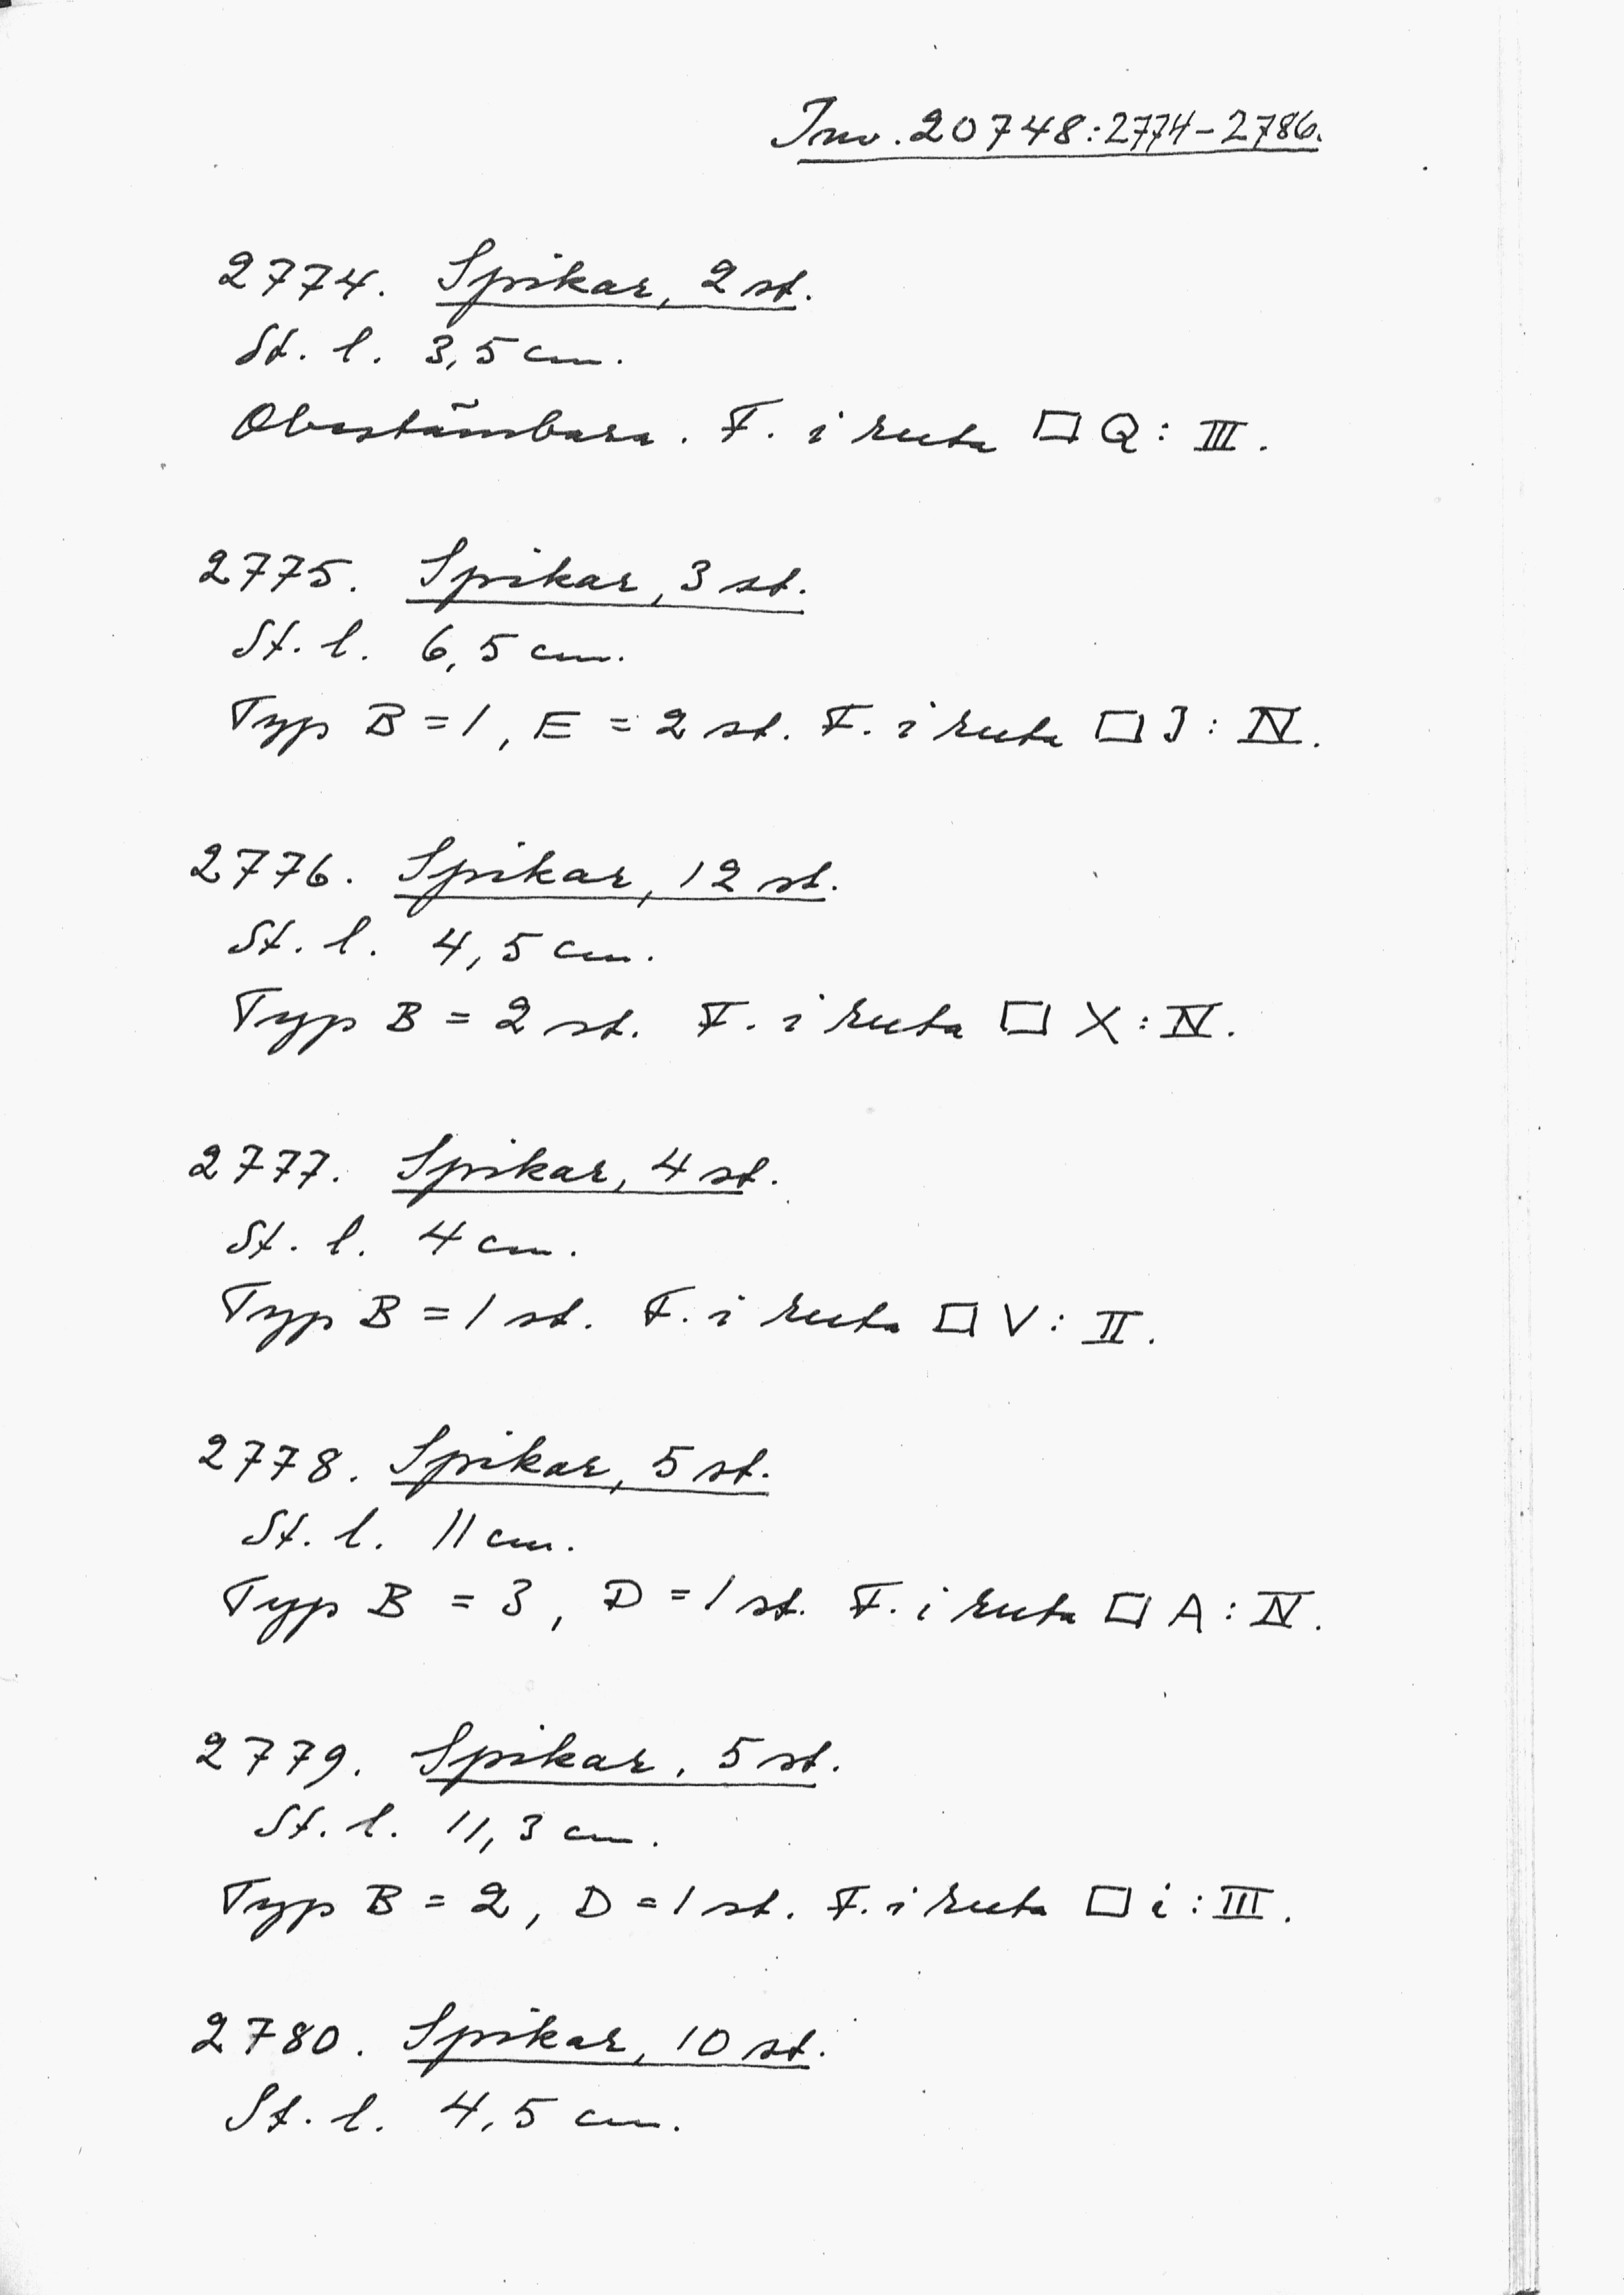 Inv. 20748:2774-2786.
2774. Spikar, 2 st.
St. l. 3,5 cm.
Obestämbara. F. i ruta □ Q: III.
2775. Spikar, 3 st.
St. l. 6,5 cm.
Typ B=1, E=2 st. F. i ruta □ J: IV.
2776. Spikar, 12 st.
St. l. 4,5 cm.
Typ B = 2 st. F. i ruta □ X: IV.
2777. Spikar, 4 st.
St. l. 4 cm.
Typ B=1 st. F. i ruta □ V: II.
2778. Spikar, 5 st.
St. l. 11 cm.
Typ B = 3, D=1 st. F. i ruta □ A: IV.
2779. Spikar, 5 st.
St. l. 11,3 cm.
Typ B=2, D=1 st. F. i ruta □ i: III.
2780. Spikar, 10 st.
St. l. 4,5 cm.